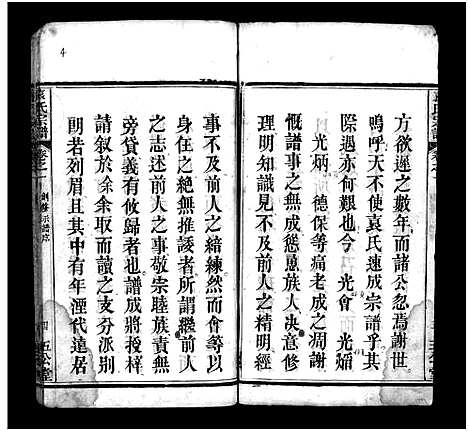 方欲遲之數年而諸公忽焉謝世
嗚呼天不使袁氏速成宗譜乎其
際遇亦何艱也今 光會 光媚
光炳 德保等痛老成之凋謝
慨譜事之無成慫恿族人決意修
理明知識見不及前人之精明經
事不及前人之諳練然而會等以
身任之絕無推諉者所謂繼前人
之志述前人之事敬宗睦族責無
旁貸義有攸歸者也譜成將登梓
請叙於余余取而讀之支分派別
朗若列眉且其中有年湮代遠居
袁氏宗譜
卷之一
創修宗譜序
四
五公堂
4